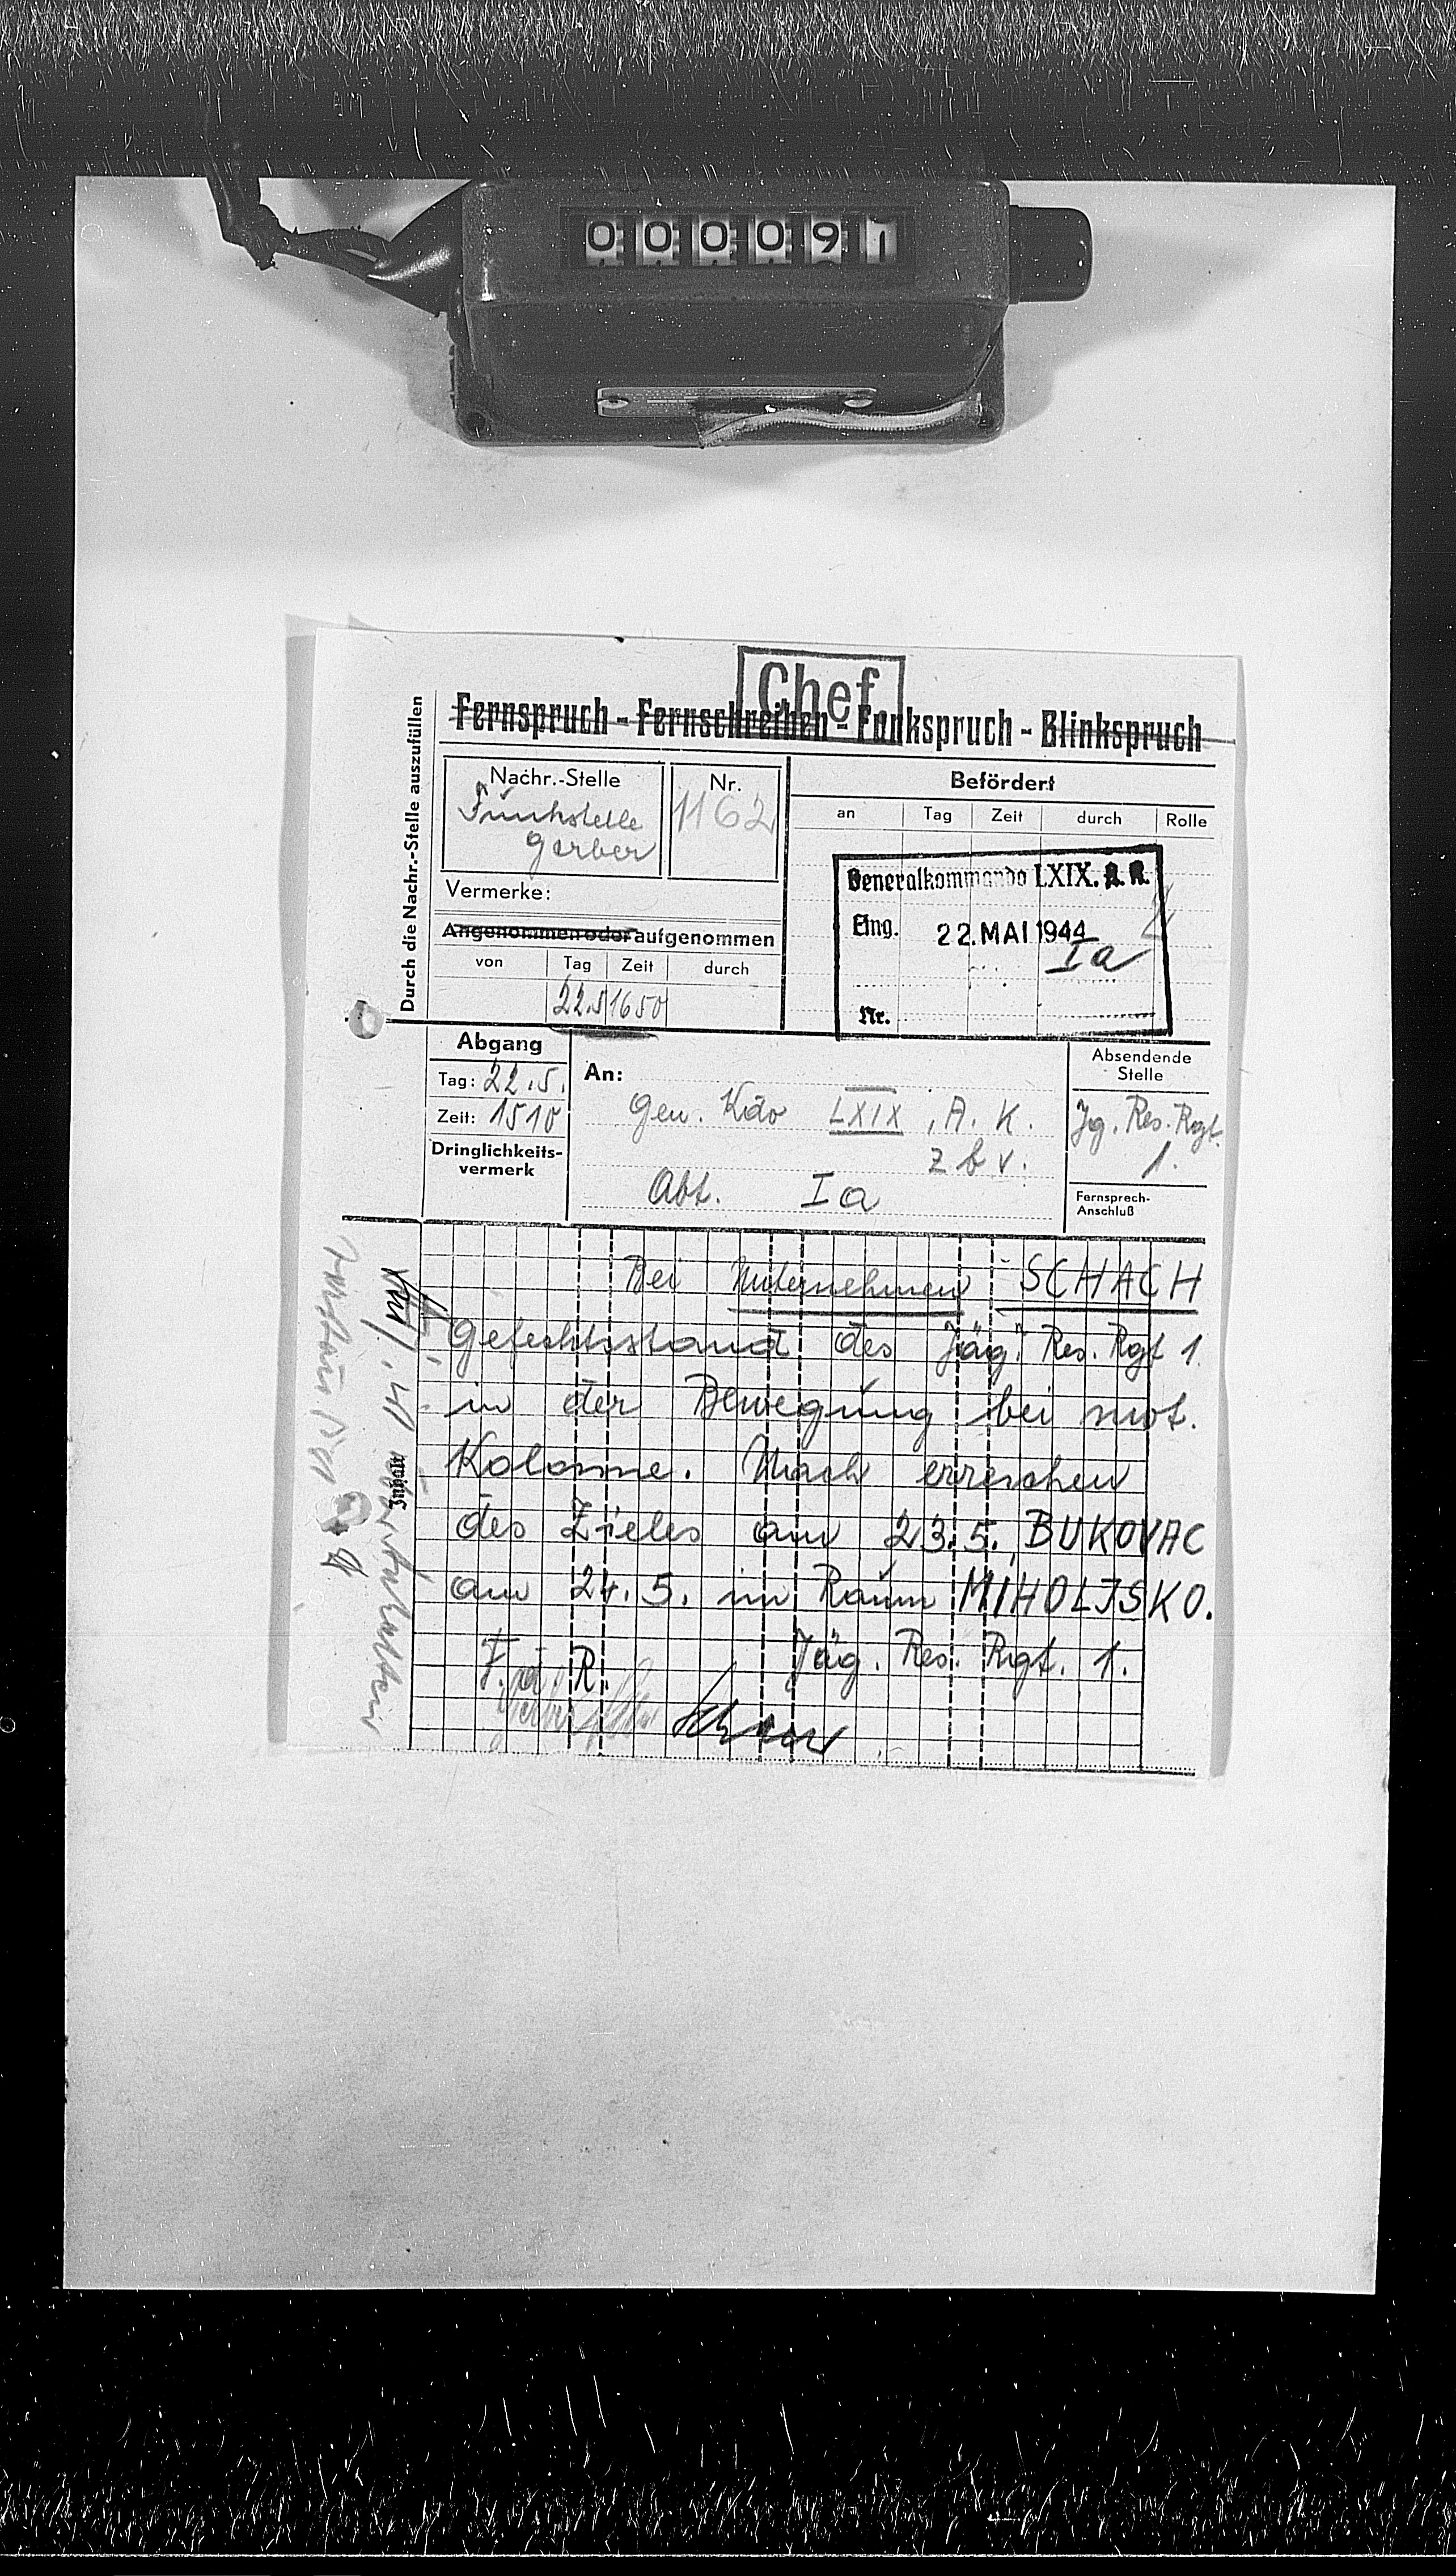 000091
Chef
Fernspruch - Fernschreiben - Funkspruch - Blinkspruch
Durch die Nachr.-Stelle auszufüllen
Nachr.-Stelle
Funkstelle
Gerber
Nr.
1162
Befördert
an Tag Zeit durch Rolle
Vermerke:
Angenommen oder aufgenommen
von Tag Zeit durch
22.5 1650
Generalkommando LXIX. A. K.
Eing. 22. MAI 1944
Ia
Nr.
Abgang
Tag: 22.5.
Zeit: 1510
Dringlichkeits-
vermerk
An:
Gen. Kdo LXIX. A. K.
z b v.
Abt. Ia
Absendende
Stelle
Jg. Res. Rgt.
1.
Fernsprech-
Anschluß
Inhalt
Bei Unternehmen SCHACH
Gefechtsstand des Jäg. Res. Rgt 1.
in der Bewegung bei mot.
Kolonne. Nach erreichen
des Zieles am 23.5. BUKOVAC
am 24.5. im Raum MIHOLJSKO.
Jäg. Res. Rgt. 1.
F.d.R.